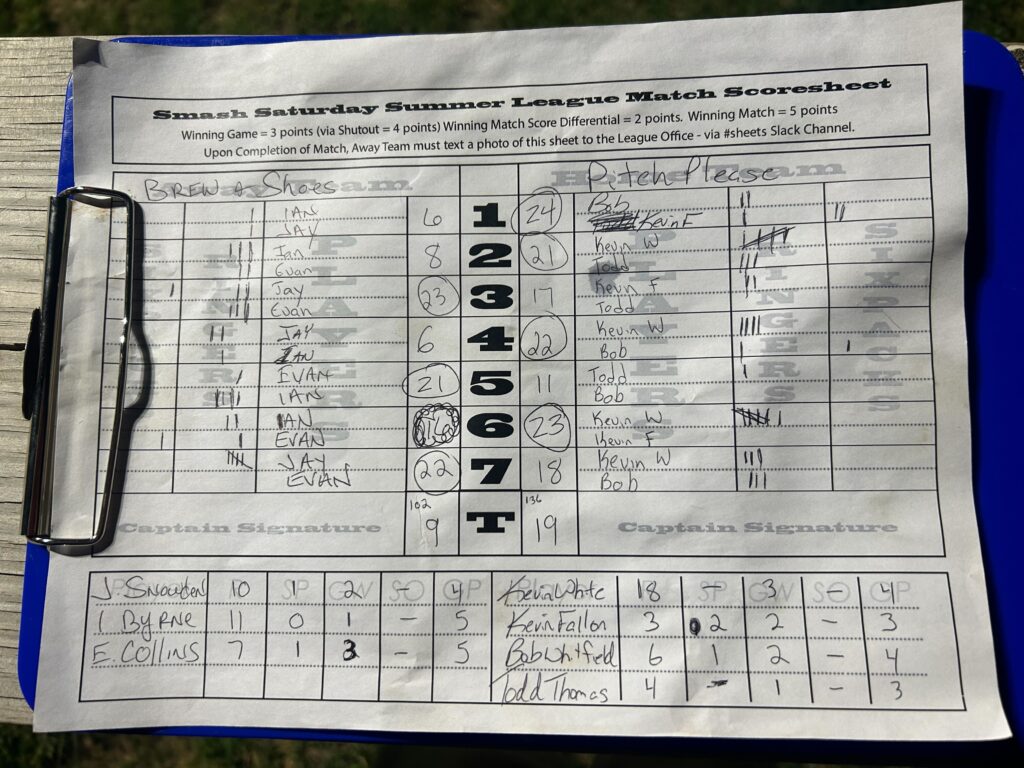 Smash Saturday Summer League Match Scoresheet
Winning Game = 3 points (via Shutout = 4 points) Winning Match Score Differential = 2 points. Winning Match = 5 points
Upon Completion of Match, Away Team must text a photo of this sheet to the League Office - via #sheets Slack Channel.
BREW A Shoes Pitch Please
IAN 6 1 24 Bob
JAY Kevin F
Ian 8 2 21 Kevin W
Evan Todd
Jay 23 3 17 Kevin F
Evan Todd
JAY 6 4 22 Kevin W
IAN Bob
EVAN 21 5 11 Todd
IAN Bob
IAN 16 6 23 Kevin W
EVAN Kevin F
JAY 22 7 18 Kevin W
EVAN Bob
102 136
Captain Signature 9 T 19 Captain Signature
J. Snowden 10 1 2 - 4 Kevin White 18 - 3 - 4
I BYRNE 11 0 1 - 5 Kevin Fallon 3 2 2 - 3
E. COLLINS 7 1 3 - 5 Bob Whitfield 6 1 2 - 4
Todd Thomas 4 - 1 - 3